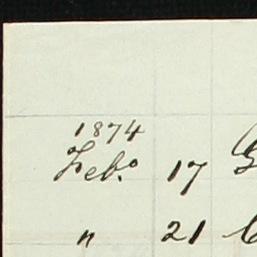 1874
Feb.o 17
" 21